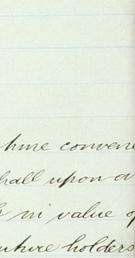 time convene
hall upon a
in value of
uture holders